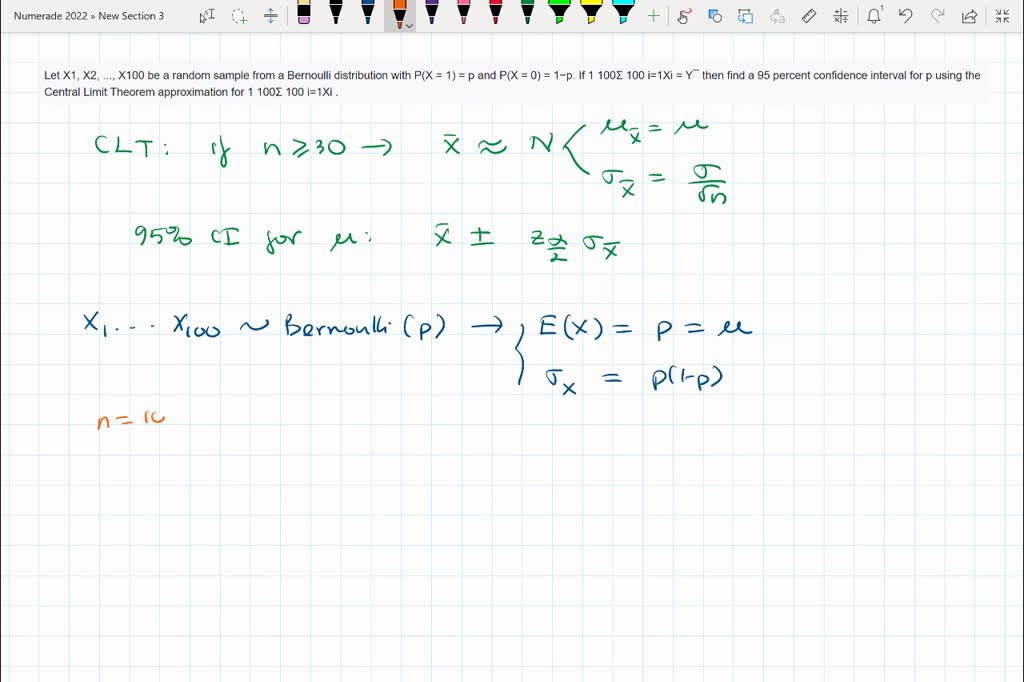 Numerade 2022 » New Section 3
Let X1, X2, ..., X100 be a random sample from a Bernoulli distribution with P(X = 1) = p and P(X = 0) = 1−p. If 1 100Σ 100 i=1Xi = Y¯ then find a 95 percent confidence interval for p using the
Central Limit Theorem approximation for 1 100Σ 100 i=1Xi .
CLT: if n ≥ 30 → x̄ ≈ N
μ_x̄ = μ
σ_x̄ = σ/√n
95% CI for μ: x̄ ± z_α/2 σ_x̄
X₁ . . . X₁₀₀ ~ Bernoulli (p) → E(X) = p = μ
σ_X = p(1-p)
n = 10